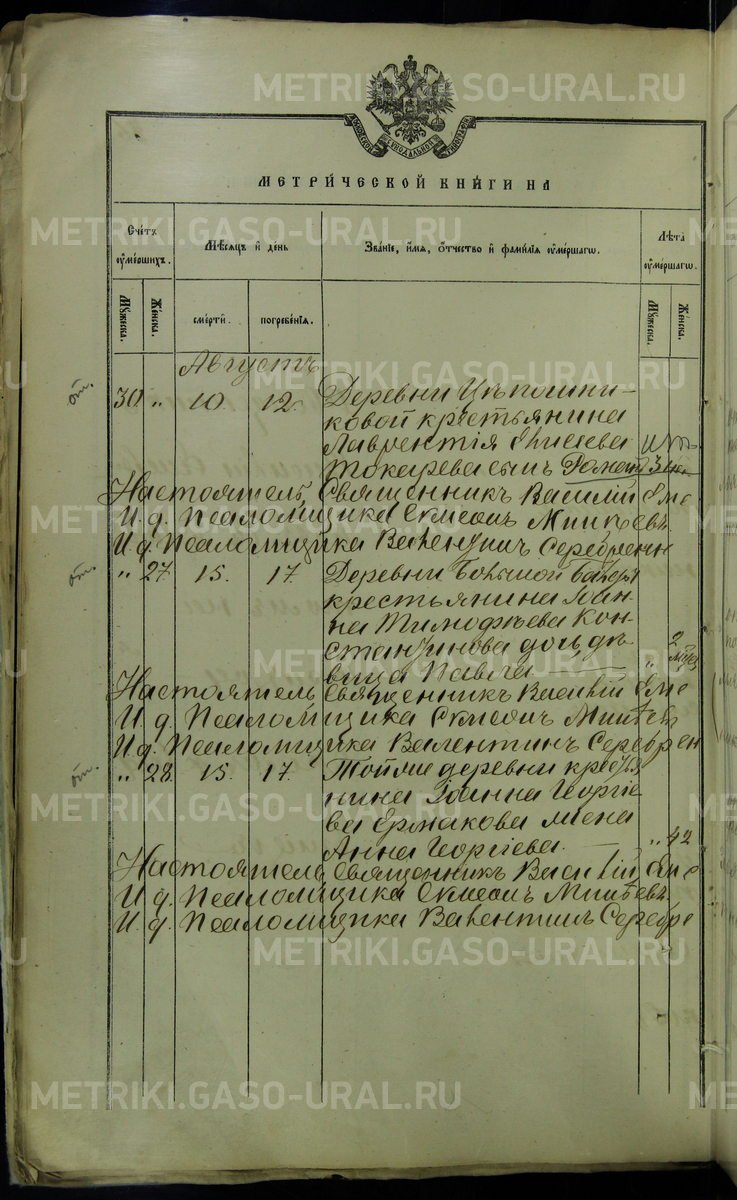 МЕТРИ́ЧЕСКОЙ КНИ́ГИ НА
Сче́тъ оу҆ме́ршихъ.
Мѣ́сяцъ и҆ де́нь
Зва́нїе, и҆́мя, ѻ҆́тчество и҆ фами́лїя оу҆ме́ршагѡ.
Лѣ́та оу҆ме́ршагѡ.
Мꙋ́жеска.
Же́нска.
сме́рти.
погребе́нїя.
Мꙋ́жеска.
Же́нска.
Августъ
от. 30 " 10. 12. Деревни
ковой крестьянина
Лаврентія Елисеева
Токарева сынъ Романъ 3
Настоятель, Священникъ Василій
И. д. Псаломщика Симеонъ
И. д. Псаломщика Валентинъ Серебрен
от. " 27 15. 17. Деревни Большой
крестьянина Іоан-
на Тимофѣева Кон-
стантинова дочь дѣ-
вица Павла " 2
Настоятель Священникъ Василій
И. д. Псаломщика Симеонъ
И. д. Псаломщика Валентинъ Серебрен
от. " 28. 15. 17. Тойже деревни крестья
нина Іоанна Георгіе
ва Ермакова жена
Анна Георгіева. " 42
Настоятель Священникъ Василій
И. д. Псаломщика Симеонъ
И. д. Псаломщика Валентинъ Серебре
METRIKI.GASO-URAL.RU